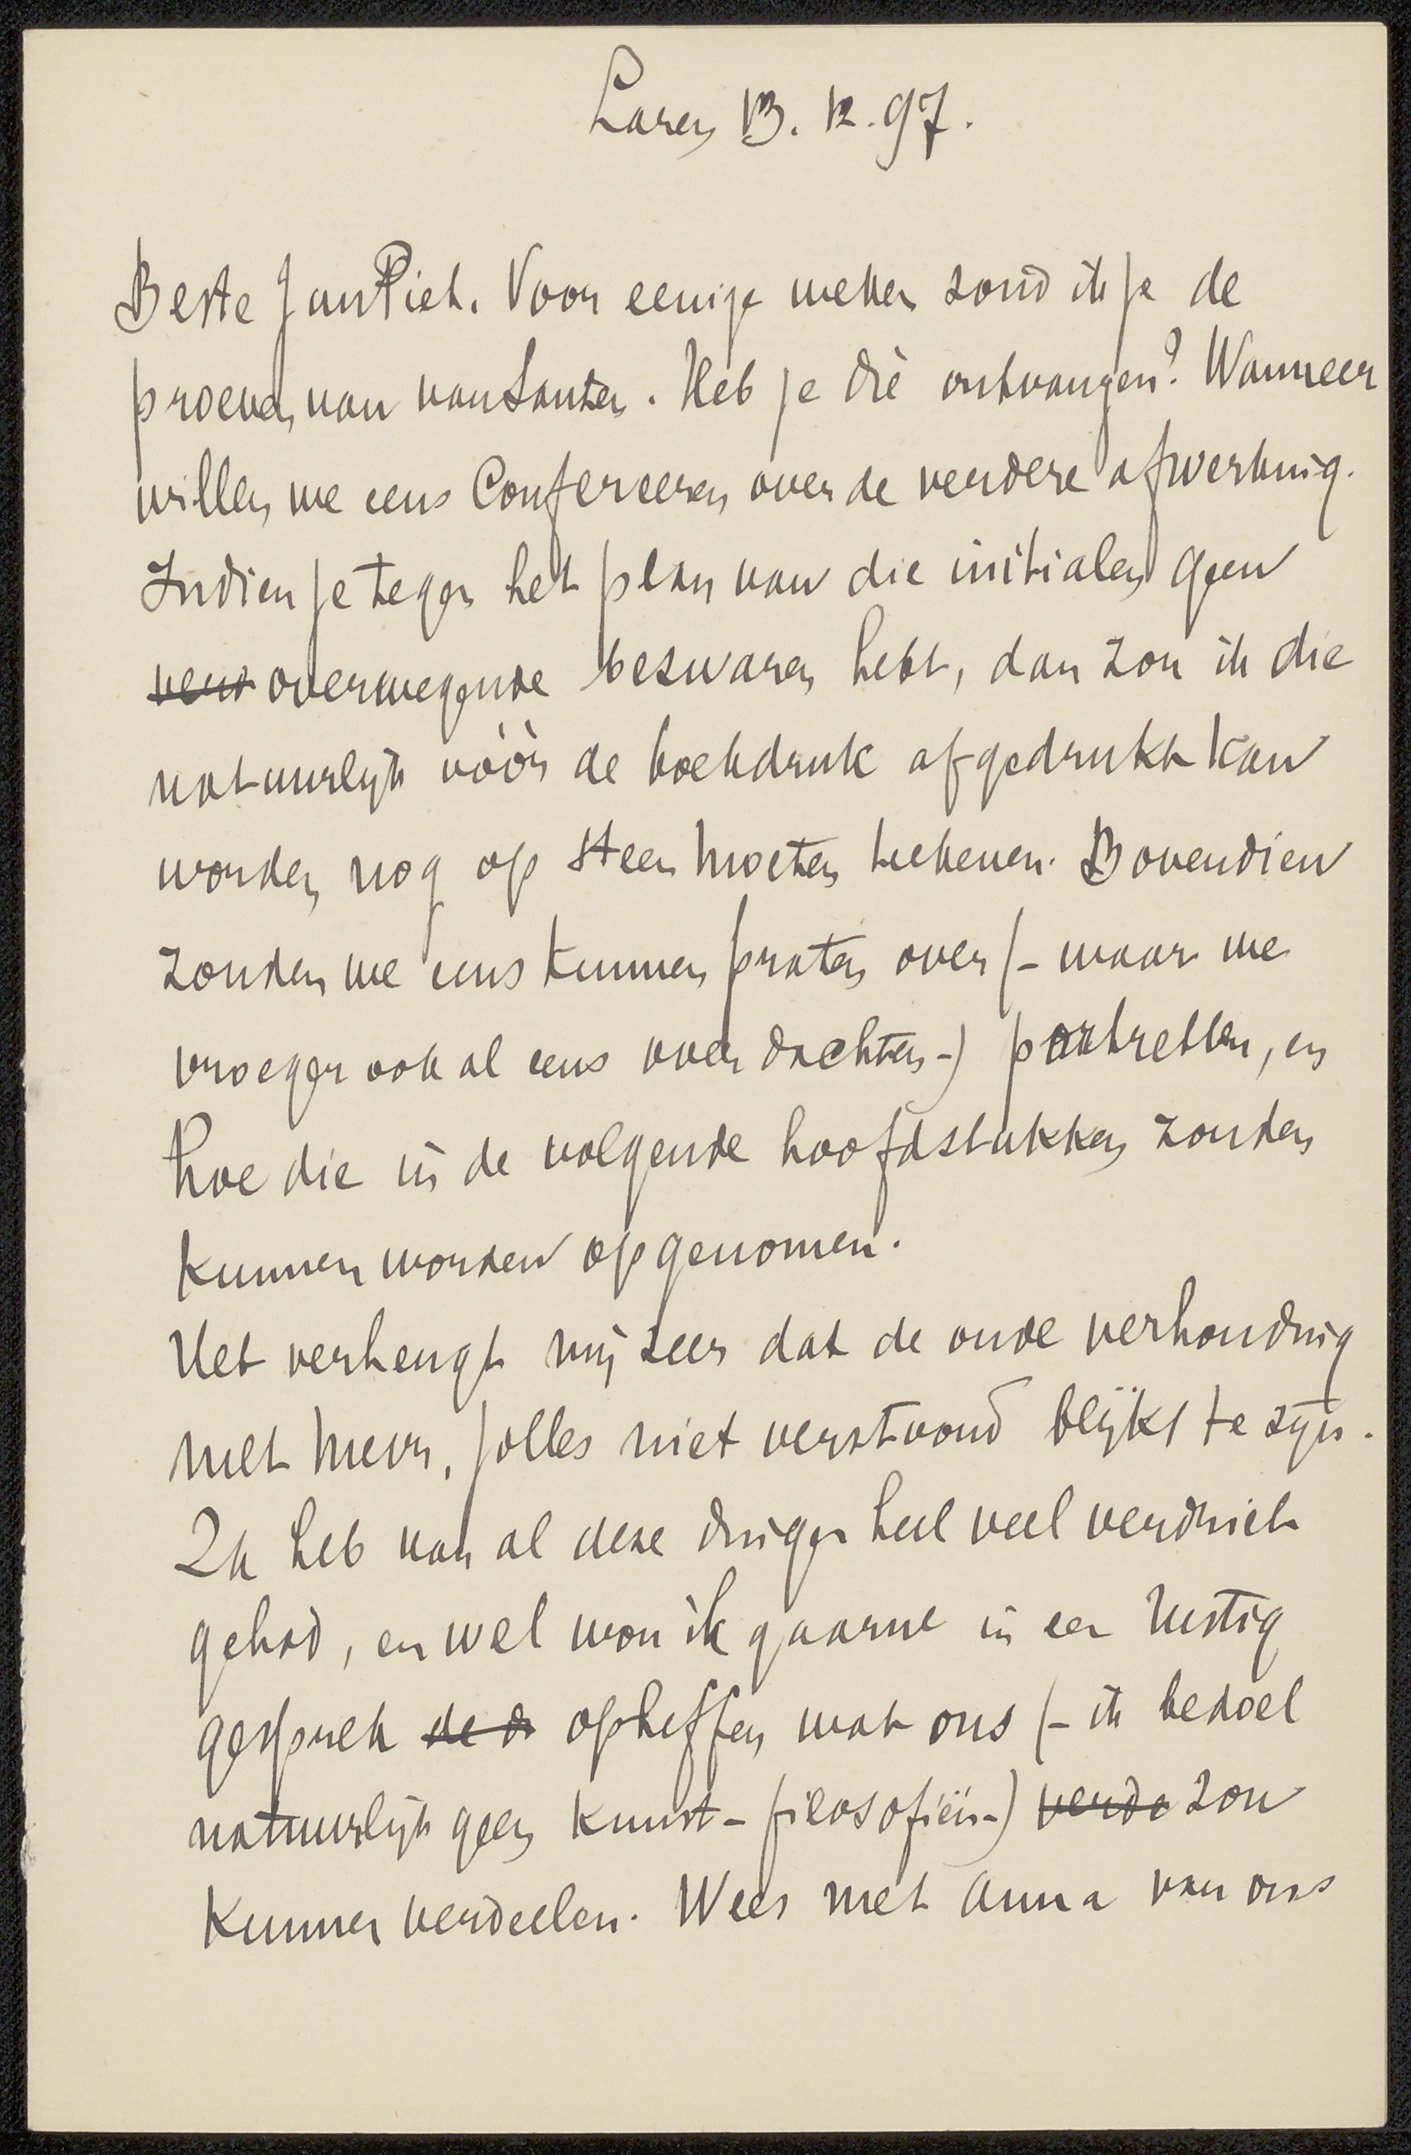 Laren 13. 12. 97.
Beste Jan Piet. Voor eenige weken zond ik je de
proeven van van Santen. Heb je die ontvangen? Wanneer
willen we eens Confereeren over de verdere afwerking.
Indien je tegen het plan van die initialen geen
overwegende bezwaren hebt, dan zou ik die
natuurlijk vóór de boekdruk afgedrukt kan
worden nog op steen moeten teekenen. Bovendien
zouden we eens kunnen praten over (- waar we
vroeger ook al eens over dachten -) portretten, en
hoe die in de volgende hoofdstukken zouden
kunnen worden opgenomen.
Het verheugt mij zeer dat de oude verhouding
met Mevr. Jolles niet verstoord blijkt te zijn.
Ik heb van al deze dingen heel veel verdriet
gehad, en wel wou ik gaarne in een rustig
gesprek opheffen wat ons (- ik bedoel
natuurlijk geen kunst-filosofiën -) zou
kunnen verdeelen. Wees met Anna van ons